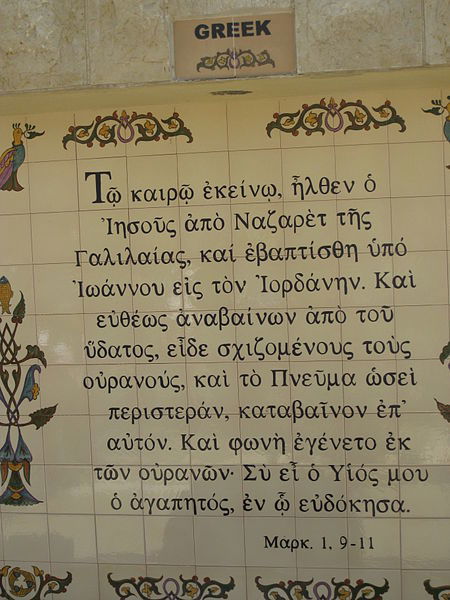 GREEK
Τῷ καιρῷ ἐκείνῳ, ἦλθεν ὁ
Ἰησοῦς ἀπὸ Ναζαρὲτ τῆς
Γαλιλαίας, καί ἐβαπτίσθη ὑπό
Ἰωάννου εἰς τὸν Ἰορδάνην. Καὶ
εὐθέως ἀναβαίνων ἀπὸ τοῦ
ὕδατος, εἶδε σχιζομένους τοὺς
οὐρανούς, καὶ τὸ Πνεῦμα ὡσεὶ
περιστεράν, καταβαῖνον ἐπ᾽
αὐτόν. Καὶ φωνὴ ἐγένετο ἐκ
τῶν οὐρανῶν· Σὺ εἶ ὁ Υἱός μου
ὁ ἀγαπητός, ἐν ᾧ εὐδόκησα.
Μαρκ. 1, 9-11